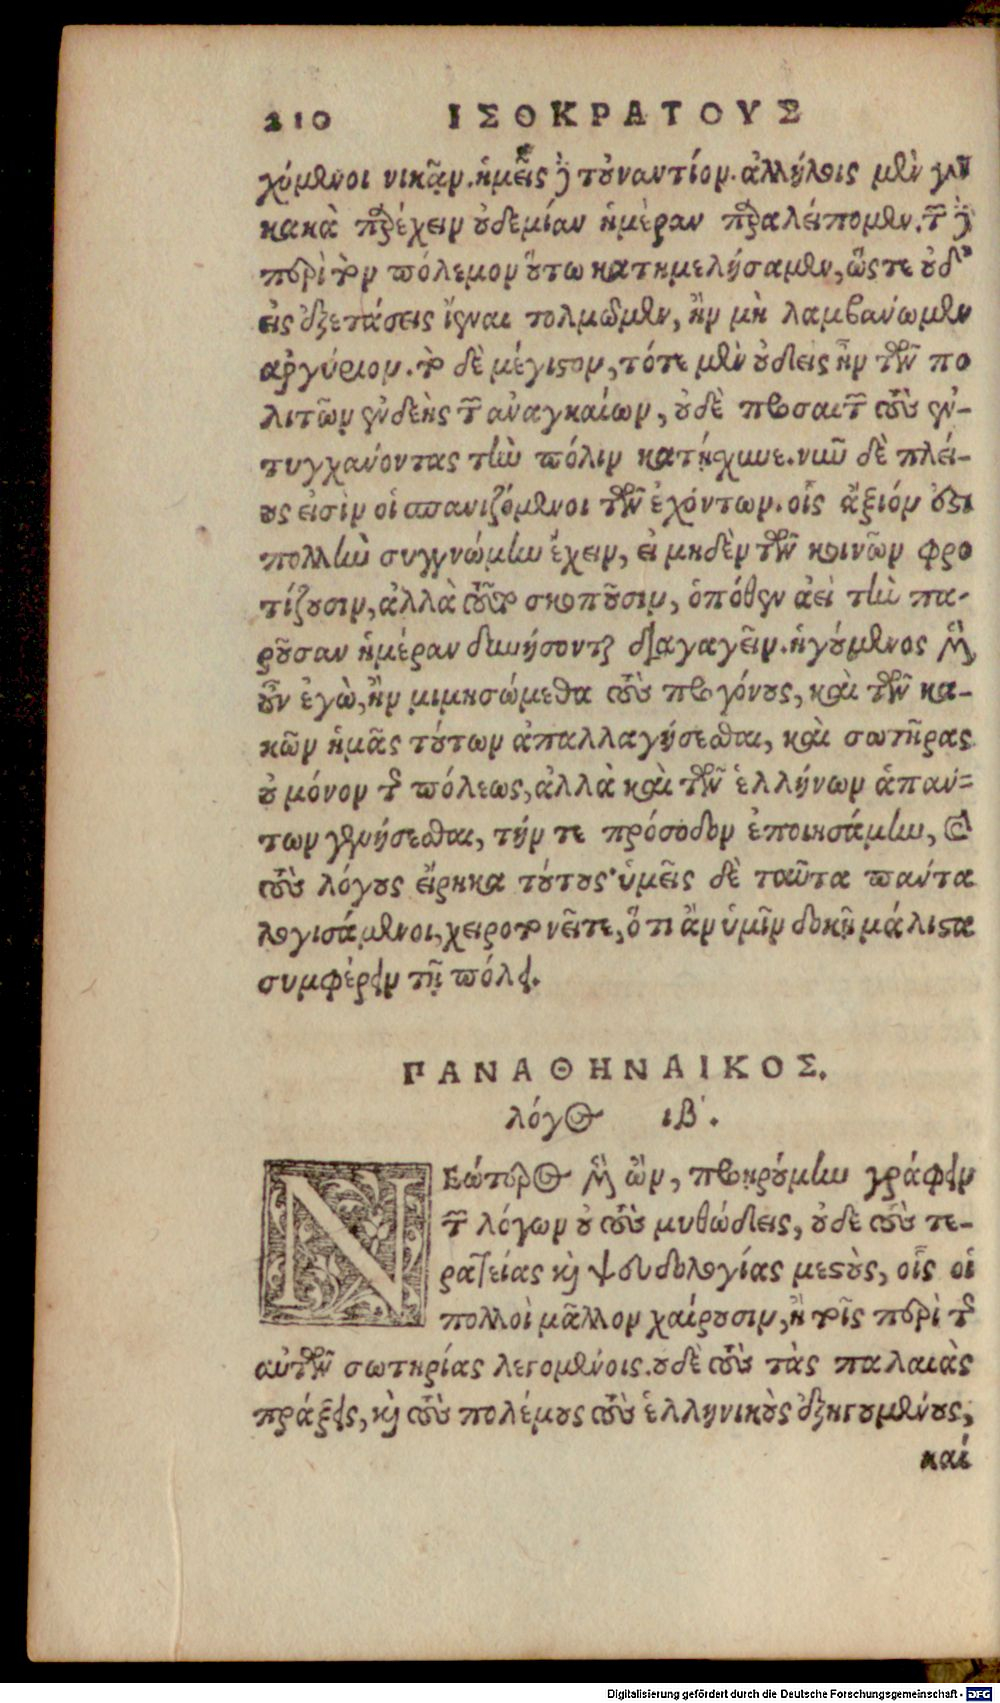 210 ΙΣΟΚΡΑΤΟΥΣ
χόμενοι νικᾷν. ἡμεῖς δὲ τοὐναντίον. ἀλλήλοις μὲν γὰρ
κακὰ παρέχειν οὐδεμίαν ἡμέραν παραλείπομεν. τῶν δὲ
περὶ τὸν πόλεμον οὕτω κατημελήσαμεν, ὥστε οὐδ'
εἰς ἐξετάσεις ἰέναι τολμῶμεν, ἢν μὴ λαμβάνωμεν
ἀργύριον. τὸ δὲ μέγιστον, τότε μὲν οὐδεὶς ἦν τῶν πο
λιτῶν ἐνδεὴς τῶν ἀναγκαίων, οὐδὲ προσαιτῶν τοὺς ἐν-
τυγχάνοντας τὴν πόλιν κατῄσχυνε. νῦν δὲ πλεί-
ους εἰσὶν οἱ σπανιζόμενοι τῶν ἐχόντων. οἷς ἄξιόν ἐστι
πολλὴν συγγνώμην ἔχειν, εἰ μηδὲν τῶν κοινῶν φρο
τίζουσιν, ἀλλὰ τοῦτο σκοποῦσιν, ὁπόθεν ἀεὶ τὴν πα-
ροῦσαν ἡμέραν δυνήσονται διαγαγεῖν. ἡγούμενος μὲν
οὖν ἐγὼ, ἢν μιμησώμεθα τοὺς προγόνους, καὶ τῶν κα-
κῶν ἡμᾶς τούτων ἀπαλλαγήσεσθαι, καὶ σωτῆρας
οὐ μόνον τῆς πόλεως, ἀλλὰ καὶ τῶν ἑλλήνων ἁπάν-
των γενήσεσθαι, τήν τε πρόσοδον ἐποιησάμην, καὶ
τοὺς λόγους εἴρηκα τούτους· ὑμεῖς δὲ ταῦτα πάντα
λογισάμενοι, χειροτονεῖτε, ὅ τι ἂν ὑμῖν δοκῇ μάλιστα
συμφέρειν τῇ πόλει.
ΠΑΝΑΘΗΝΑΙΚΟΣ.
λόγος ιβ'.
ΝΕώτερος μὲν ὢν, προῃρούμην γράφειν
τῶν λόγων οὐ τοὺς μυθώδεις, οὐδὲ τοὺς τε-
ρατείας καὶ ψευδολογίας μεστοὺς, οἷς οἱ
πολλοὶ μᾶλλον χαίρουσιν, ἢ τοῖς περὶ τῆς
αὑτῶν σωτηρίας λεγομένοις. οὐδὲ τοὺς τὰς παλαιὰς
πράξεις, καὶ τοὺς πολέμους τοὺς ἑλληνικοὺς ἐξηγουμένους,
καί
Digitalisierung gefördert durch die Deutsche Forschungsgemeinschaft - DFG